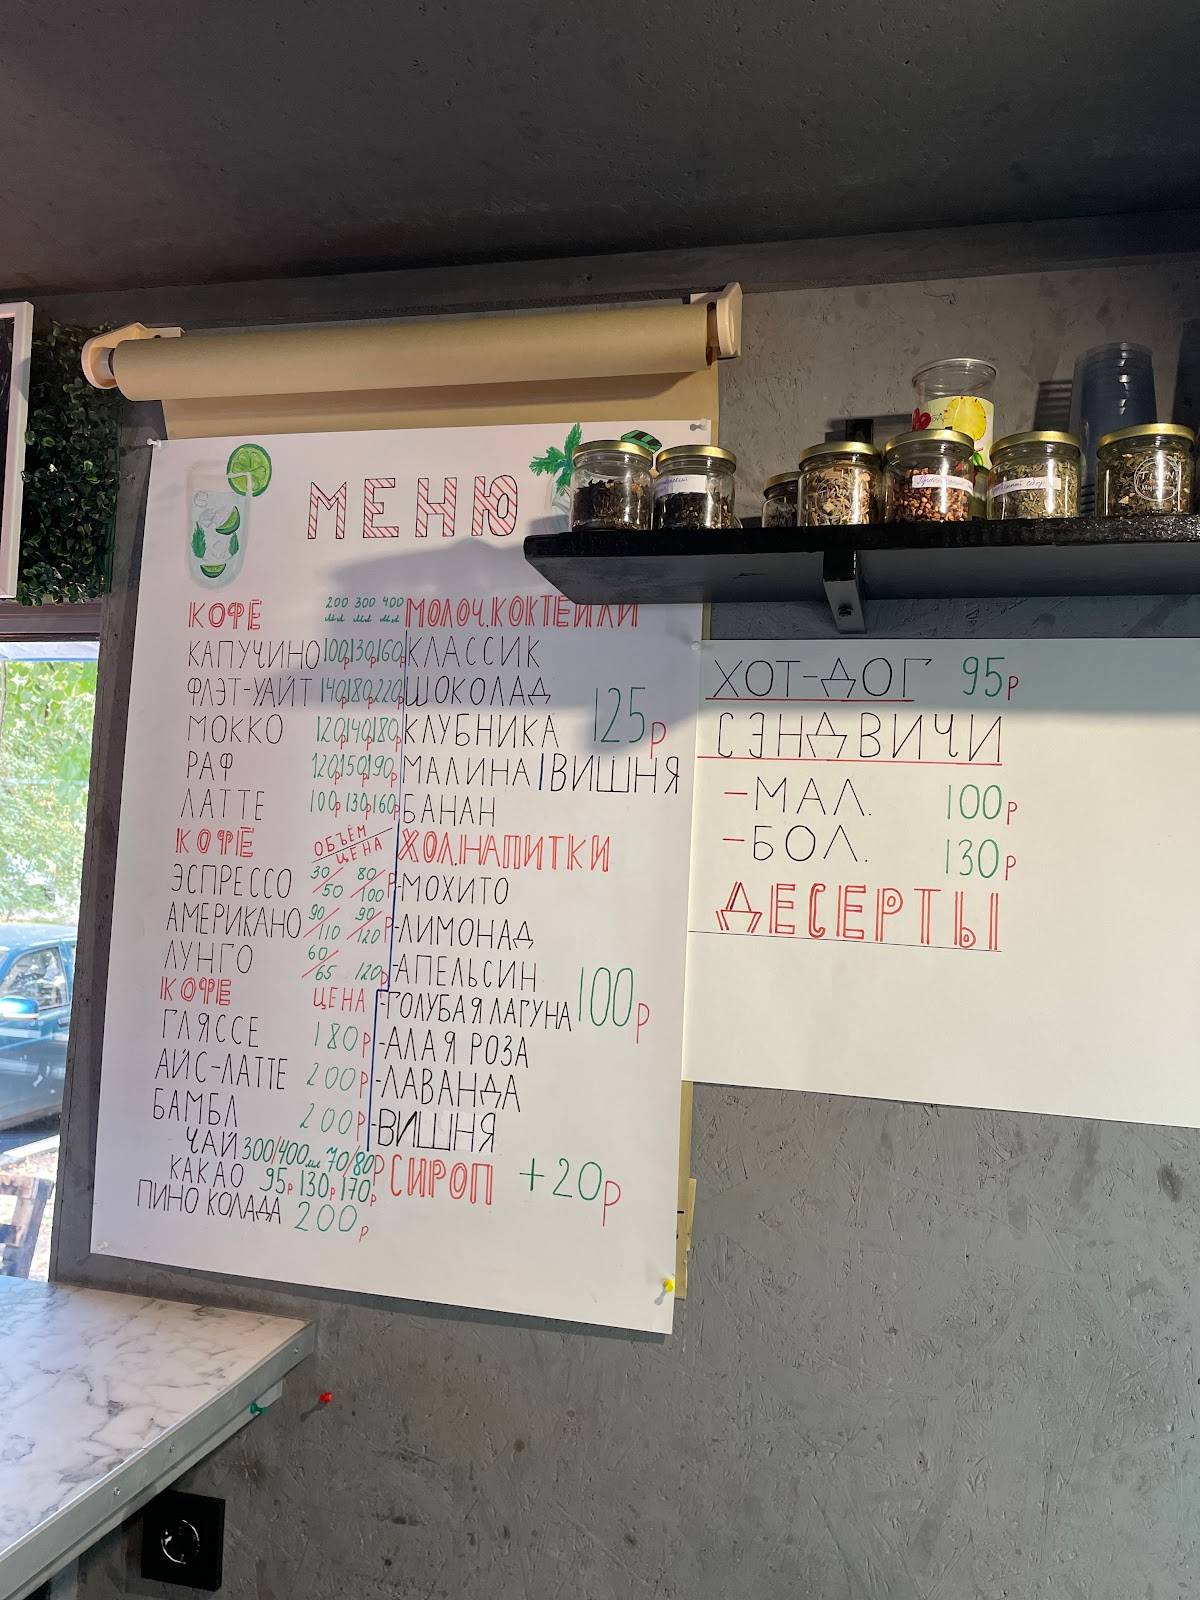 МЕНЮ
КОФЕ 200 мл 300 мл 400 мл
КАПУЧИНО 100р 130р 160р
ФЛЭТ-УАЙТ 140р 180р 220р
МОККО 120р 140р 180р
РАФ 120р 150р 190р
ЛАТТЕ 100р 130р 160р
КОФЕ ОБЪЁМ/ЦЕНА
ЭСПРЕССО 30/50 80/100р
АМЕРИКАНО 90/110 90/120р
ЛУНГО 60/65 120р
КОФЕ ЦЕНА
ГЛЯССЕ 180р
АЙС-ЛАТТЕ 200р
БАМБЛ 200р
ЧАЙ 300/400мл 70/80р
КАКАО 95р 130р 170р
ПИНО КОЛАДА 200р
МОЛОЧ.КОКТЕЙЛИ
КЛАССИК
ШОКОЛАД
КЛУБНИКА 125р
МАЛИНА | ВИШНЯ
БАНАН
ХОЛ.НАПИТКИ
-МОХИТО
-ЛИМОНАД
-АПЕЛЬСИН
-ГОЛУБАЯ ЛАГУНА 100р
-АЛАЯ РОЗА
-ЛАВАНДА
-ВИШНЯ
СИРОП +20р
ХОТ-ДОГ 95р
СЭНДВИЧИ
-МАЛ. 100р
-БОЛ. 130р
ДЕСЕРТЫ